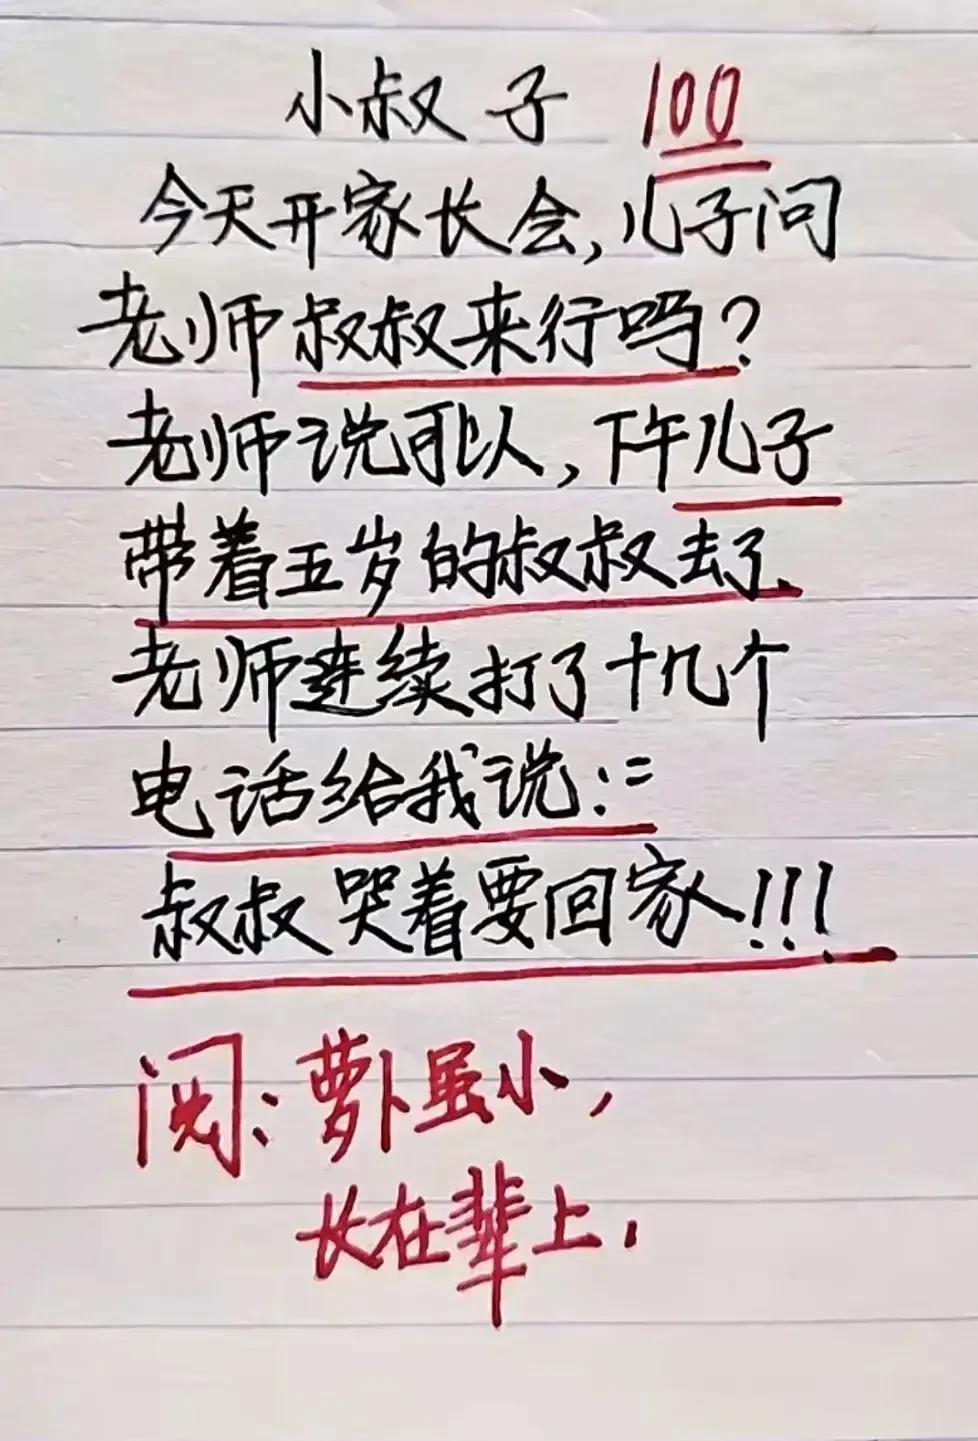 小叔子 100
今天开家长会,儿子问
老师叔叔来行吗?
老师说可以,下午儿子
带着五岁的叔叔去了.
老师连续打了十几个
电话给我说:=
叔叔哭着要回家!!!
阅:萝卜虽小,
长在辈上.